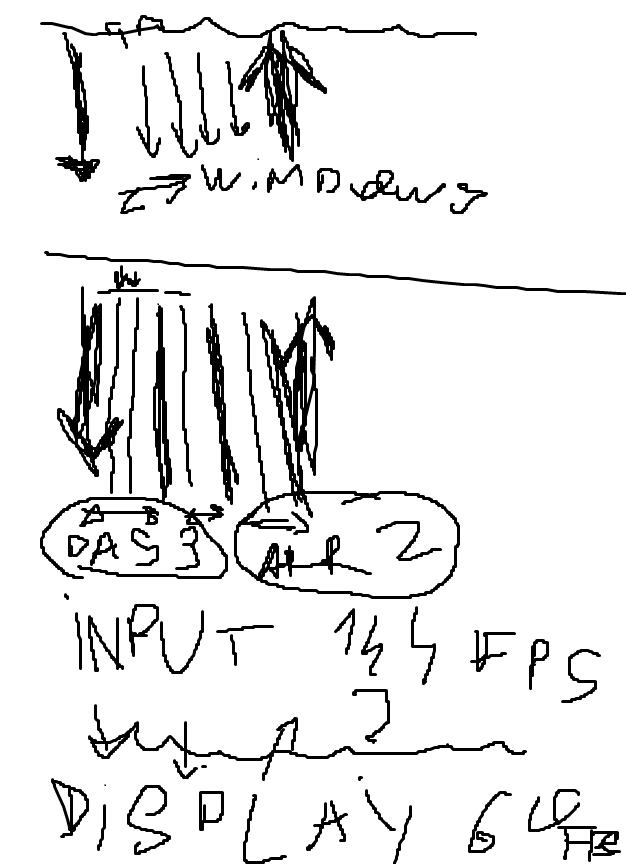 WiNDOwS
DAS 3 ARR 2
iNPUT 144 FPS
DiSPLAY 60 HZ